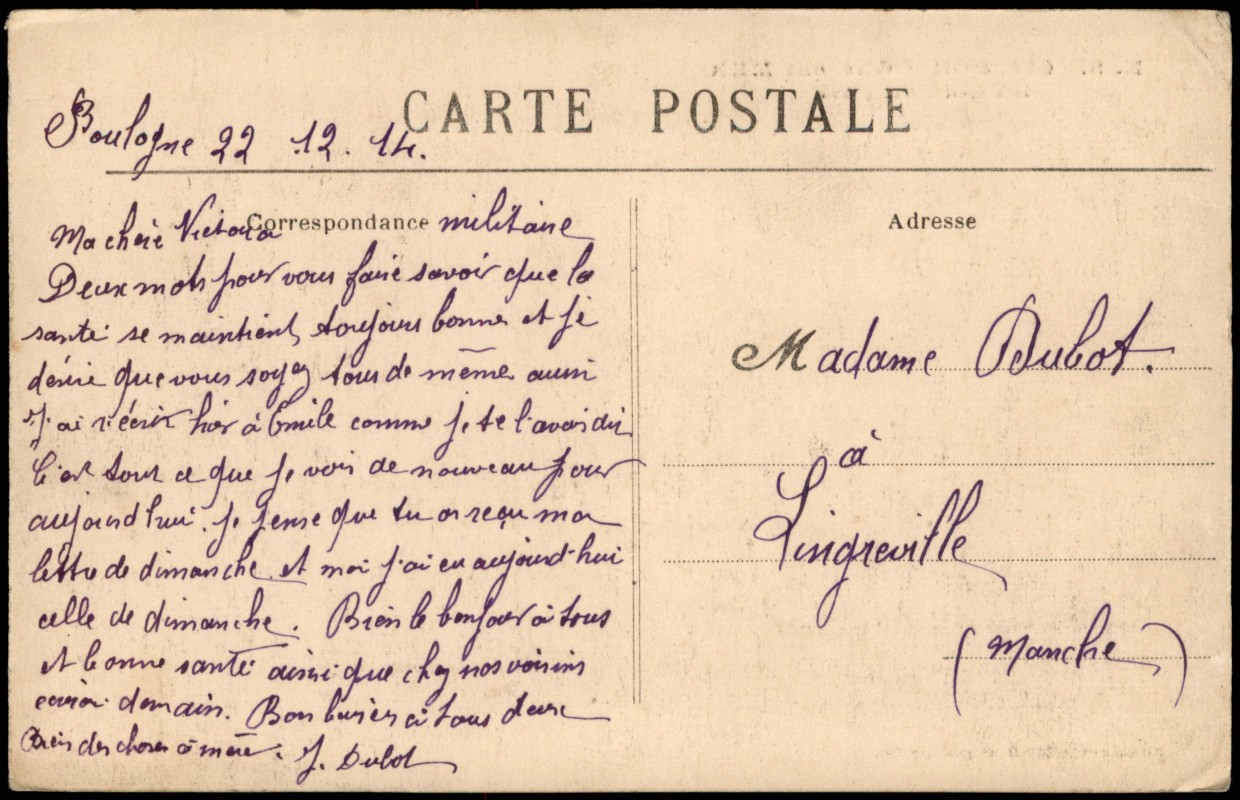 CARTE POSTALE
Boulogne 22 .12. 14.
Correspondance militaire
Adresse
Ma chère Victoria
Deux mots pour vous faire savoir que la
santé se maintient toujours bonne et je
désire que vous soyez tous de même aussi
J'ai récrit hier à Emile comme je te l'avais dit
C'est tout ce que je vois de nouveau pour
aujourd'hui. Je pense que tu as reçu ma
lettre de dimanche et moi j'ai eu aujourd'hui
celle de dimanche. Bien le bonjour à tous
et bonne santé ainsi que chez nos voisins
demain. Bon à tous deux
Bien des choses à mère. J. Dubot
Madame Dubot.
à
Lingreville
(Manche)